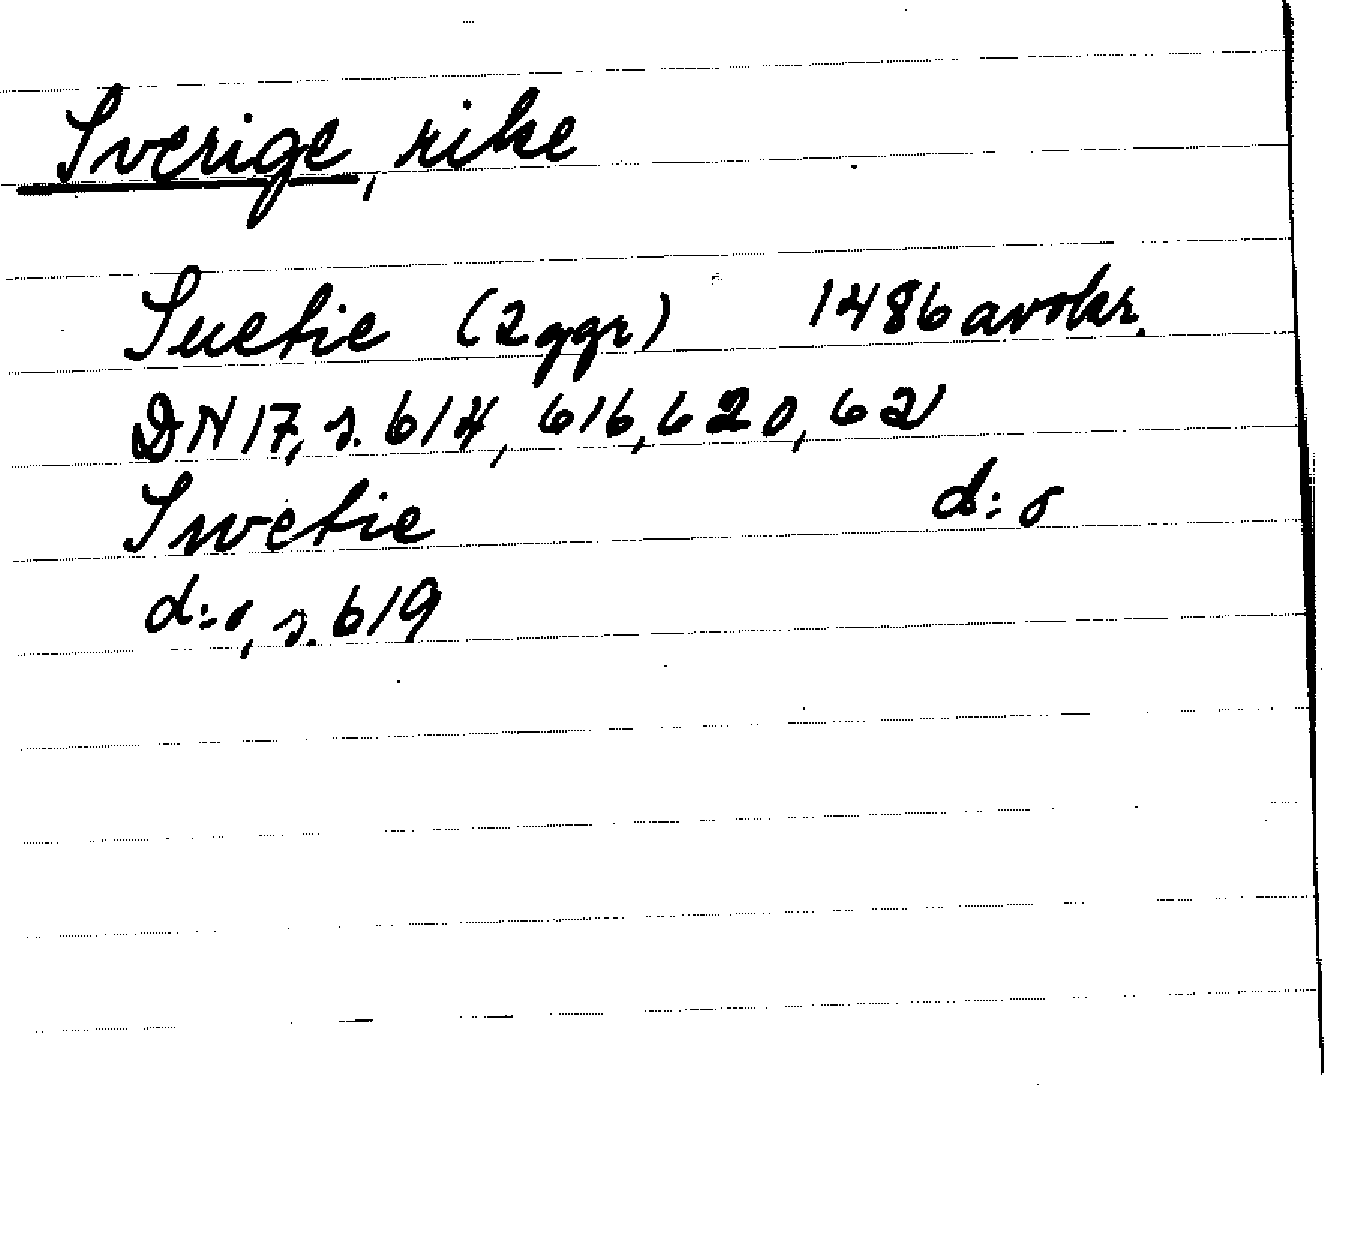 Sverige, rike
Suetie (2 ggr) 1486 avskr.
DN 17, s. 614, 616, 620, 621
Swetie d:o
d:o, s. 619